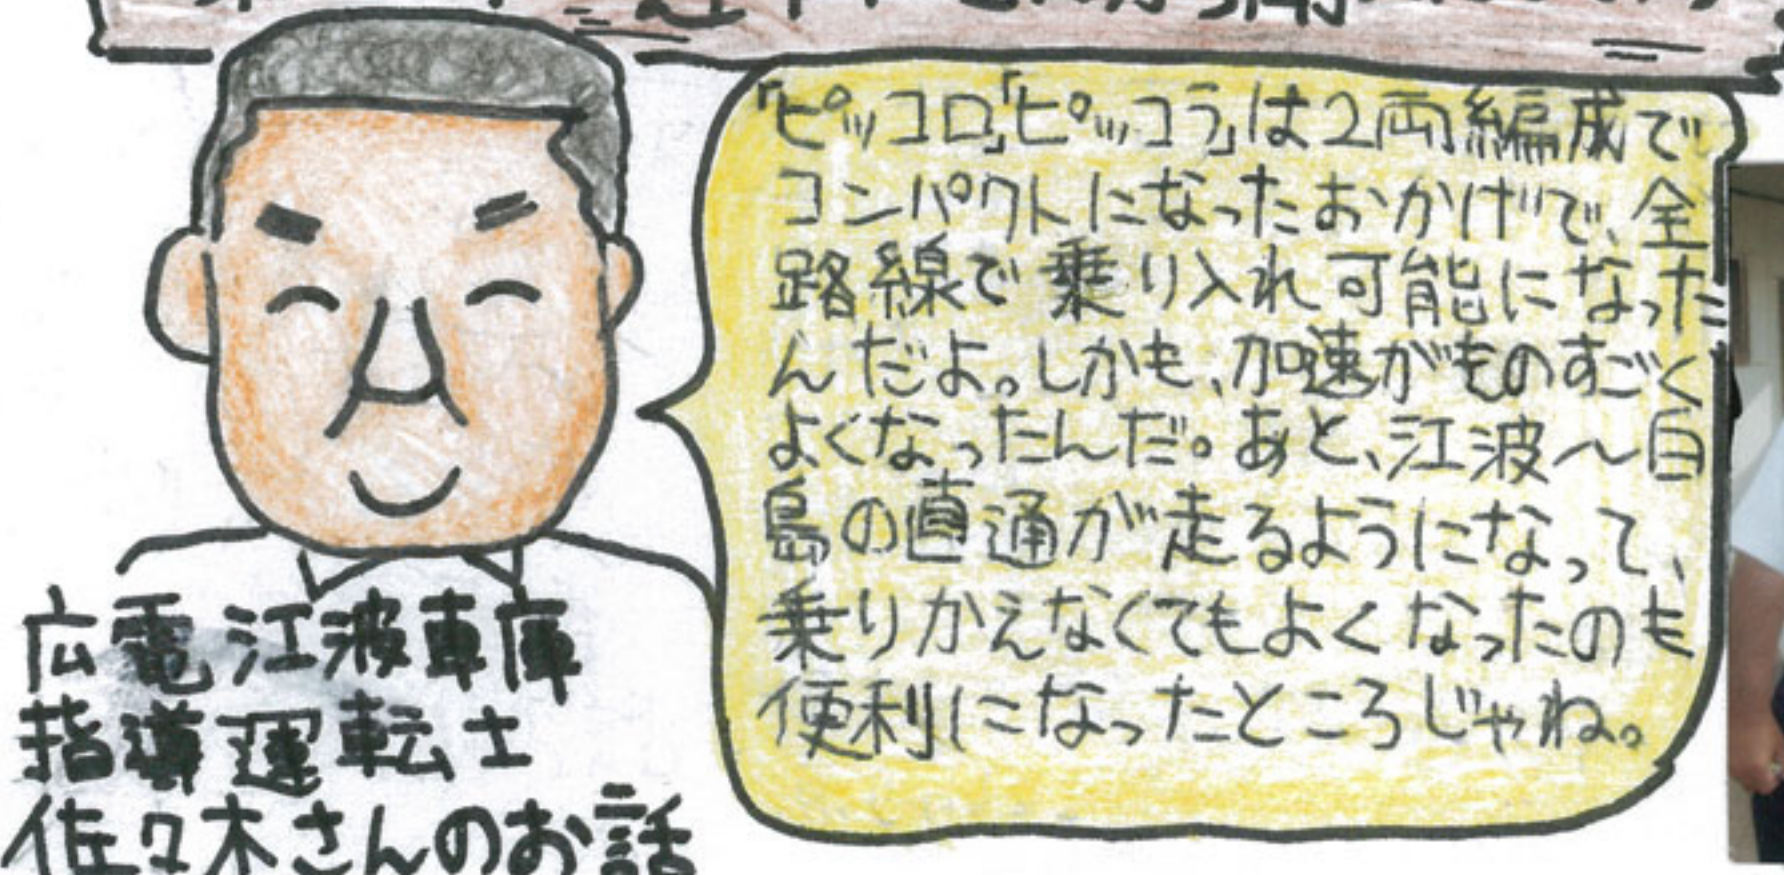 「ピッコロ」「ピッコラ」は2両編成で
コンパクトになったおかげで、全
路線で乗り入れ可能になった
んだよ。しかも、加速がものすごく
よくなったんだ。あと、江波～白
島の直通が走るようになって、
乗りかえなくてもよくなったのも
便利になったところじゃね。
広電江波車庫
指導運転士
佐々木さんのお話